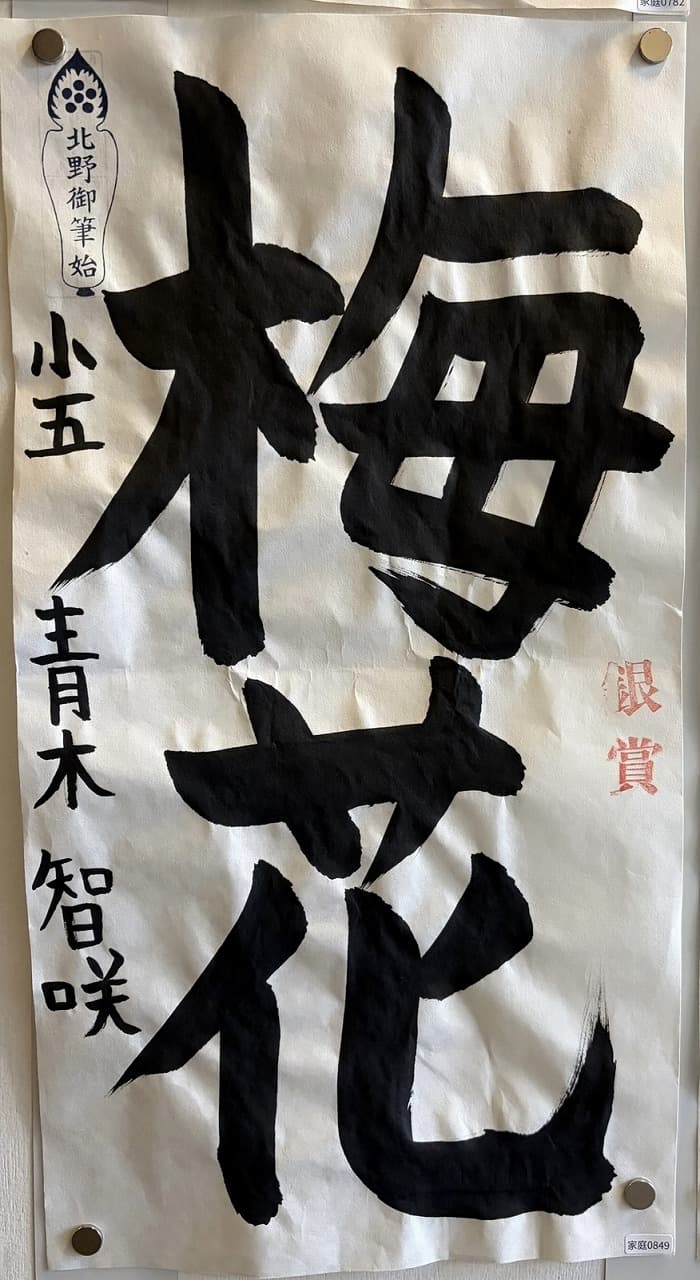 家庭0782
梅花
銀賞
北野御筆始
小五
青木
智咲
家庭0849